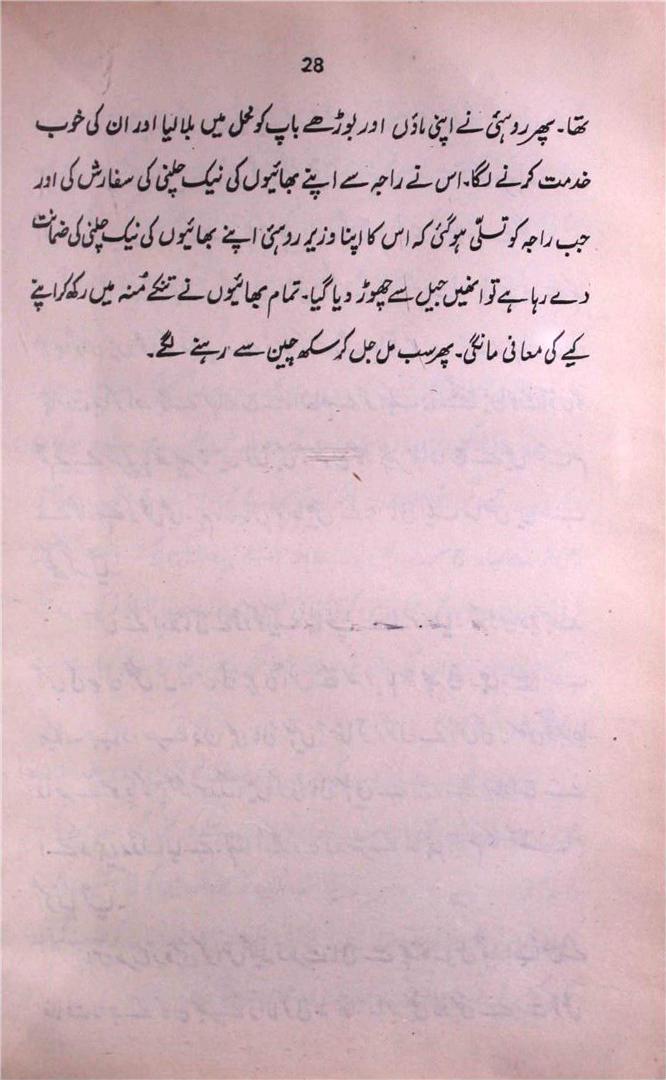 28
تھا۔ پھر روہنی نے اپنی ماؤں اور بوڑھے باپ کو محل میں بلا لیا اور ان کی خوب
خدمت کرنے لگا۔ اس نے راجہ سے اپنے بھائیوں کی نیک چلنی کی سفارش کی اور
جب راجہ کو تسلّی ہوگئی کہ اس کا اپنا وزیر روہنی اپنے بھائیوں کی نیک چلنی کی ضمانت
دے رہا ہے تو انھیں جیل سے چھوڑ دیا گیا۔ تمام بھائیوں نے تنکے مُنہ میں رکھ کر اپنے
کیے کی معافی مانگی۔ پھر سب مل جل کر سکھ چین سے رہنے لگے۔